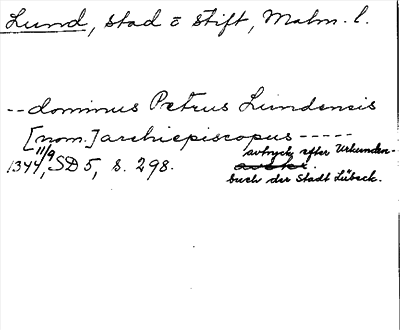 Lund, stad o stift, Malm. l.
-- dominus Petrus Lundensis
[nom.] archiepiscopus -----
11/9
1344, SD 5, s. 298.
avtryck efter Urkunden-
buch der Stadt Lübeck.